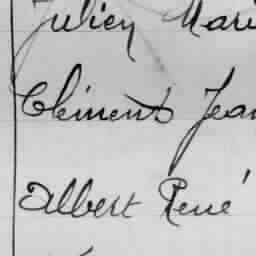 Julien Mari
Clément Jean
Albert René